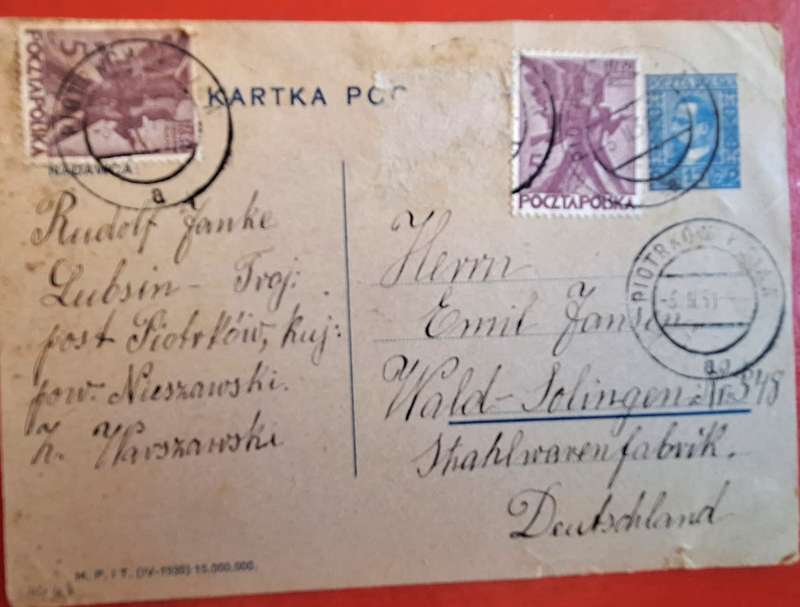 POCZTA POLSKA
5
KARTKA POC
5
POCZTA POLSKA
POCZTA POLSKA
15
NADAWCA:
Rudolf Janke
Lubsin - Troj:
post Piotrków, Kuj:
pow. Nieszawski.
z. Warszawski
Herrn
Emil Jansen
Wald-Solingen Nr. 345
Stahlwarenfabrik.
Deutschland
PIOTRKÓW KUJAW
a
a
M. P. i T. (IV-1930) 15.000.000.